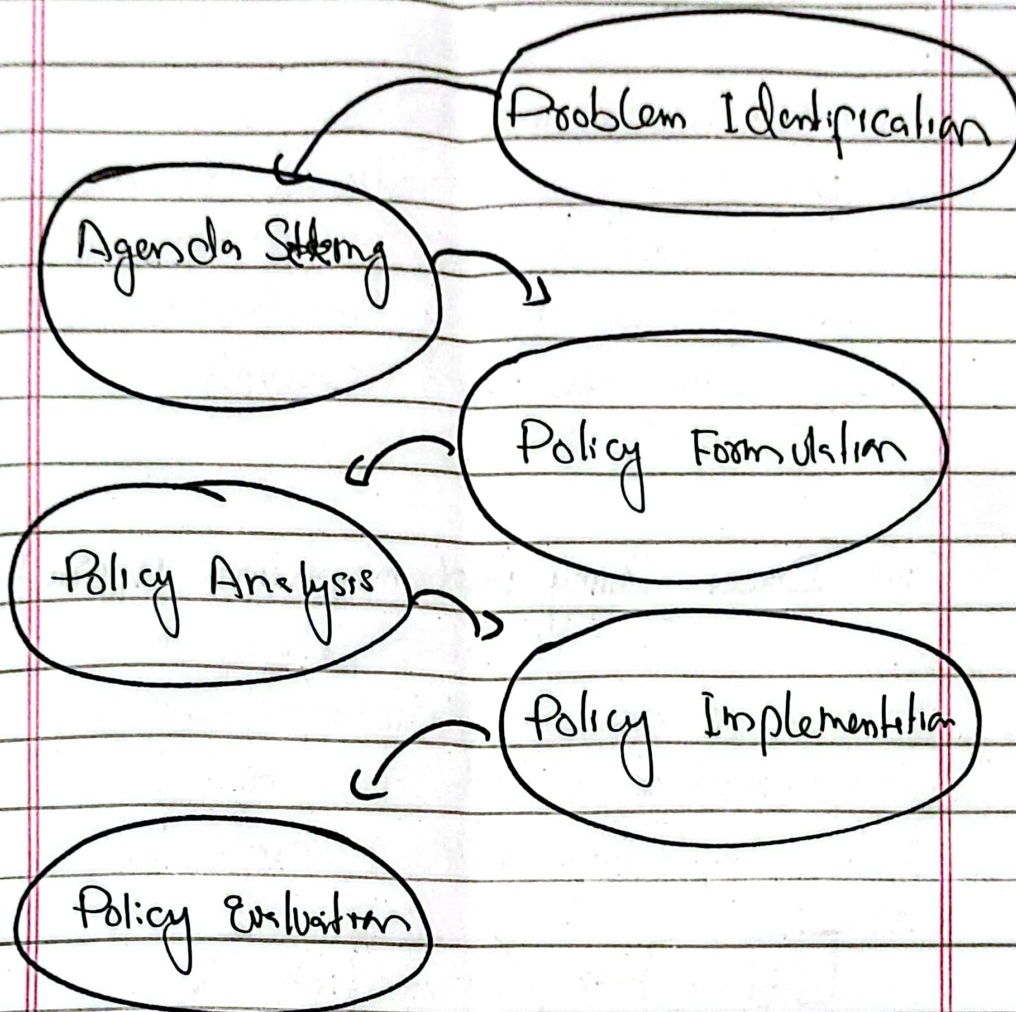 Problem Identification
Agenda Setting
Policy Formulation
Policy Analysis
Policy Implementation
Policy Evaluation